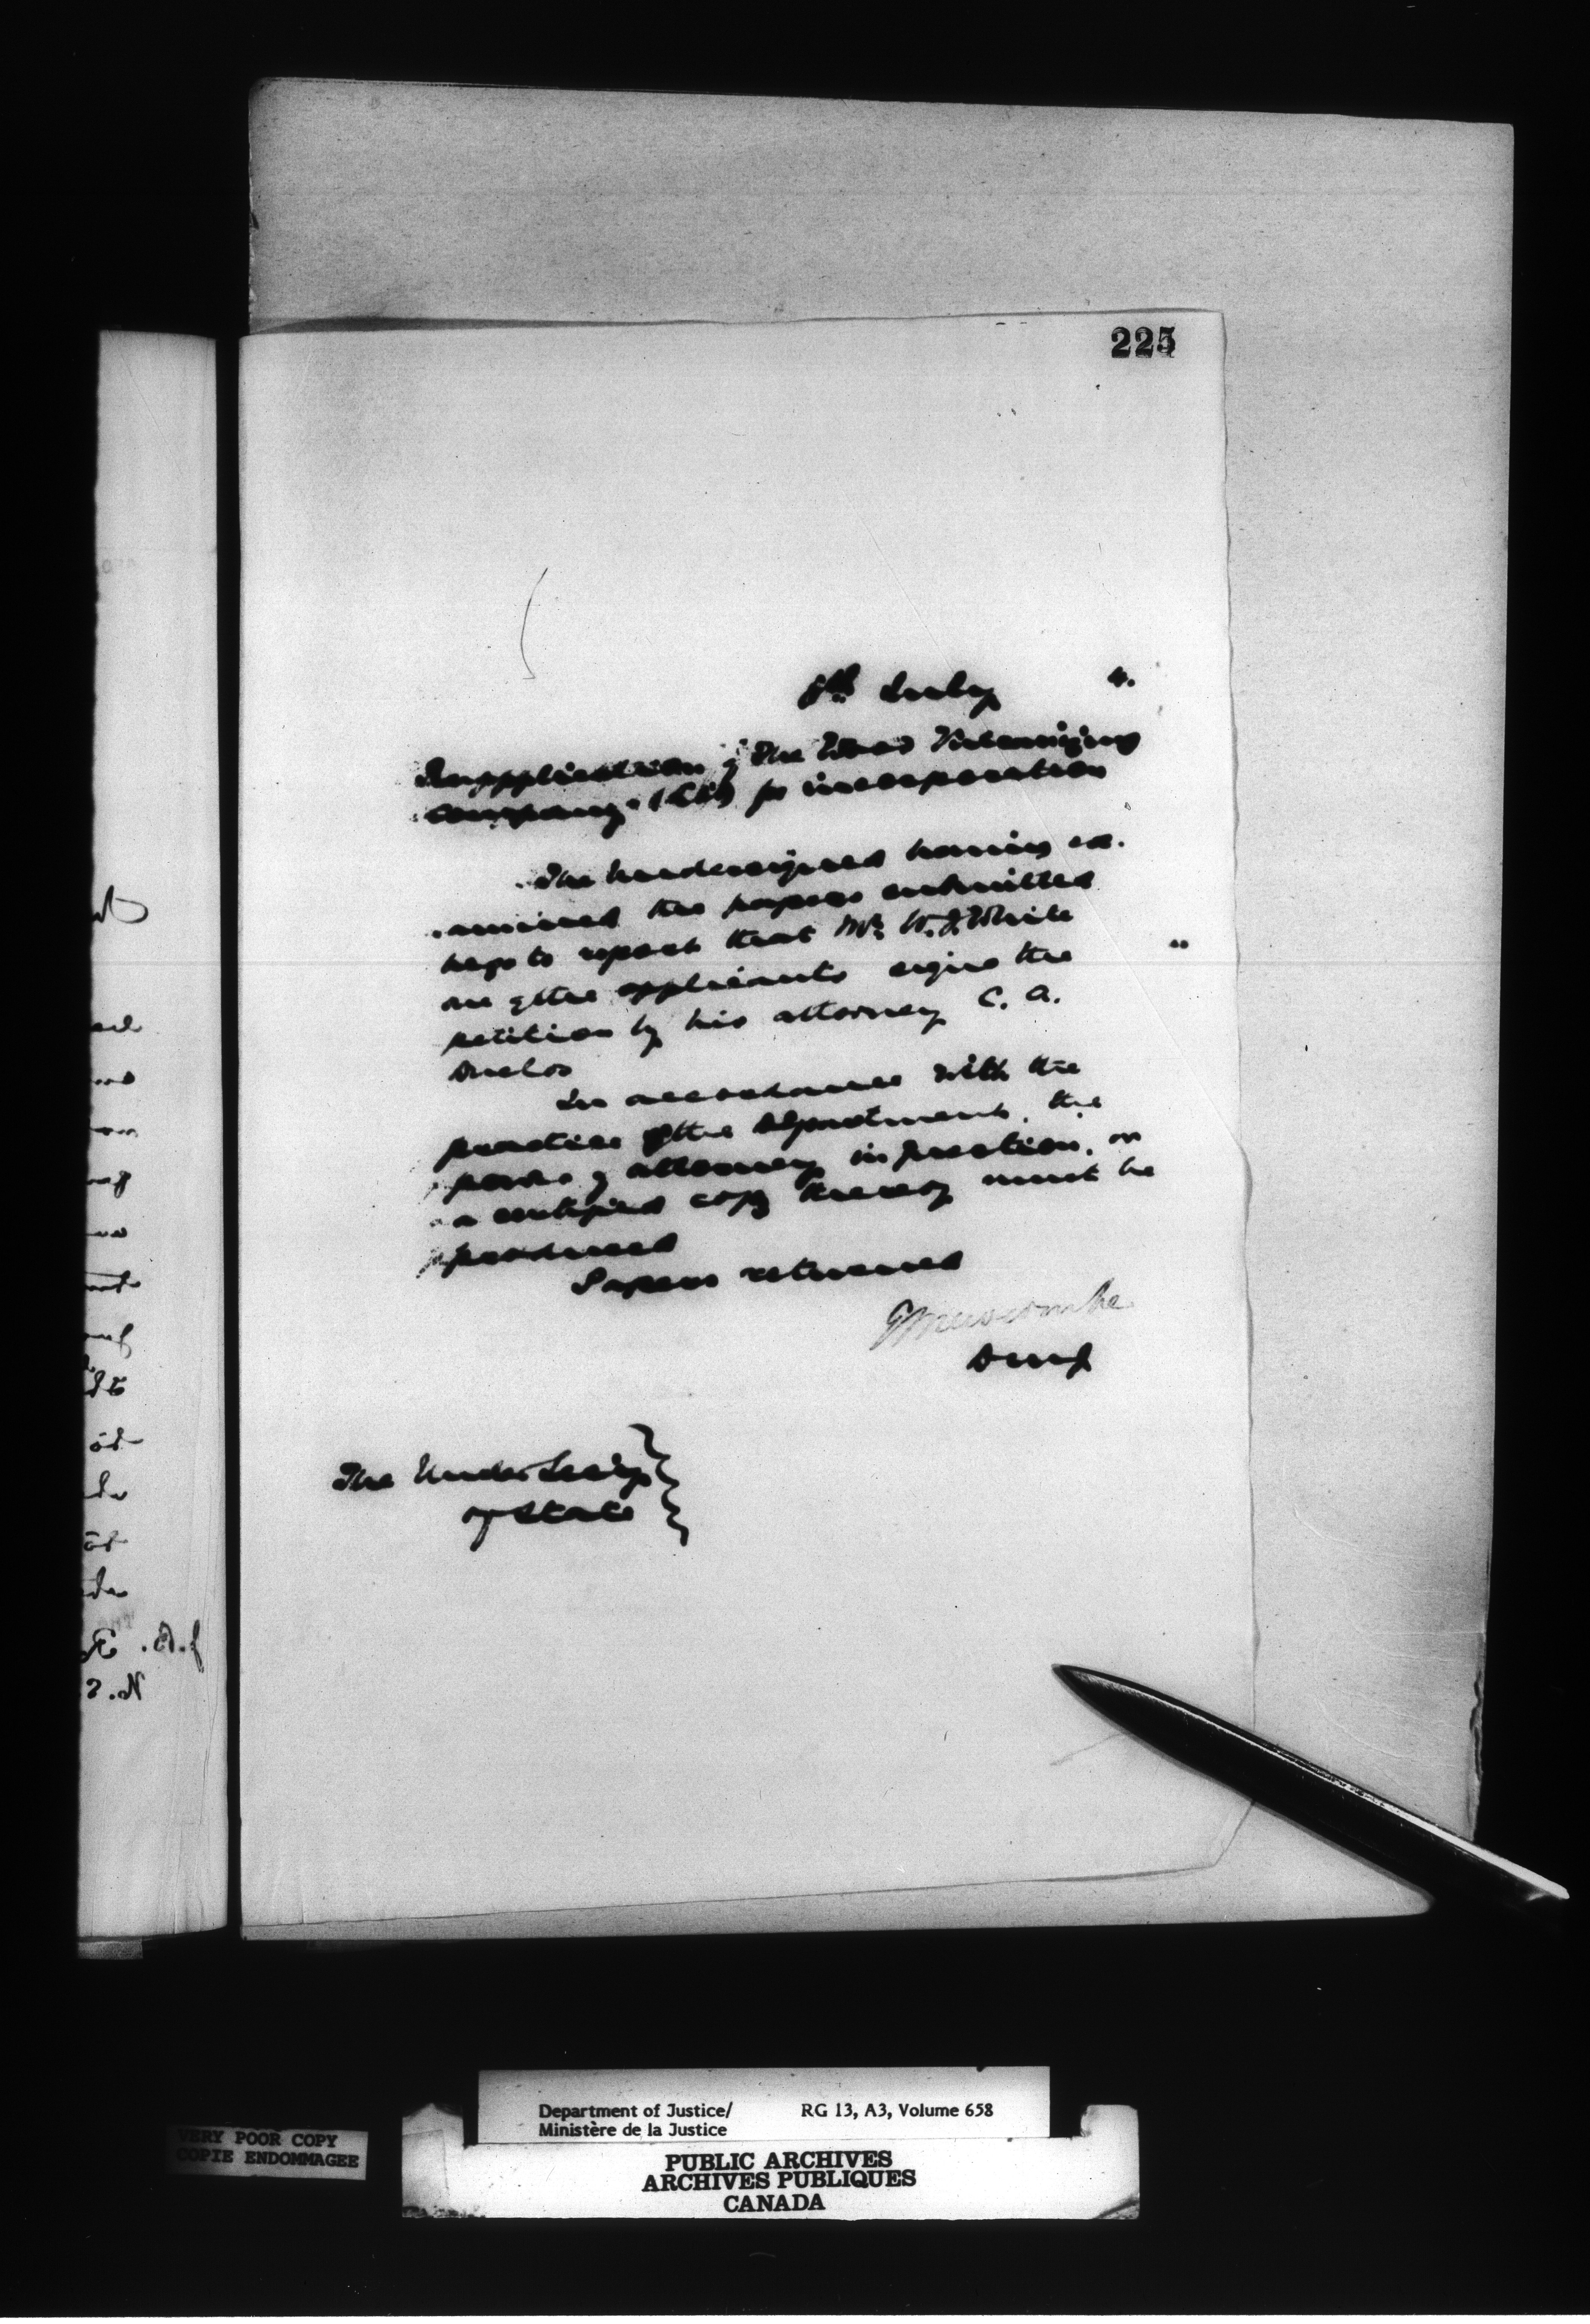 225
8th July 4.
Re application of The Wood Vulcanizing
Company (Ltd) for incorporation
The undersigned having ex-
amined the papers submitted
begs to report that Mr. W. J. White
one of the applicants signs the
petition by his attorney C. A.
Duclos
In accordance with the
practice of the Department, the
power of attorney in question, or
a certified copy thereof must be
produced
Papers returned
E Newcombe
D M J
The Under Secy
of State
J. B. R
N. S
VERY POOR COPY
COPIE ENDOMMAGEE
Department of Justice/ RG 13, A3, Volume 658
Ministère de la Justice
PUBLIC ARCHIVES
ARCHIVES PUBLIQUES
CANADA